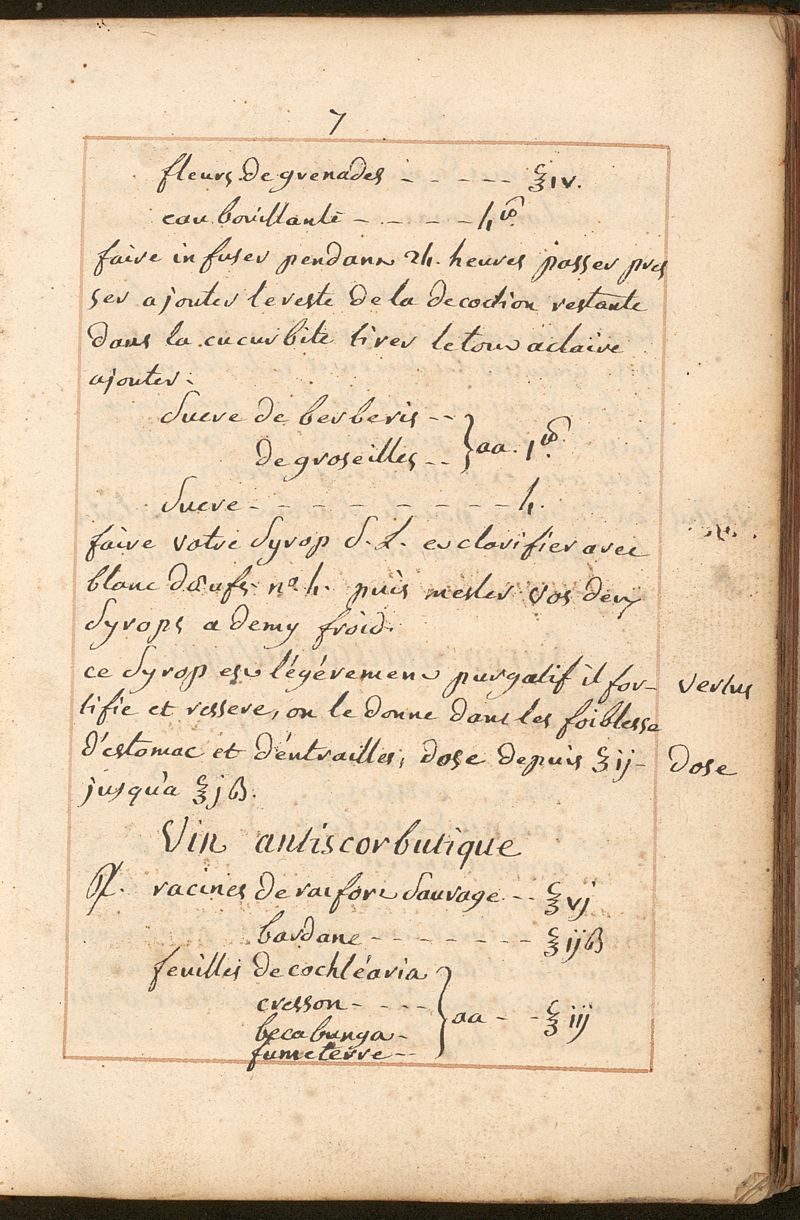 7
fleurs de grenades - - - - - ℥ iv.
eau bouillante - - - - - 4 lb.
faire infuser pendant 24. heures passer pres
ser ajouter le reste de la decoction restante
dans la cucurbite tirer le tout a claire
ajouter:
Sucre de berberis - -
de groseilles - - } aa. 1 lb.
Sucre - - - - - - - - 4.
faire votre Syrop S. L. et clarifier avec
blanc d'œufs nº 4. puis mesler vos deux
Syrops a demy froid.
ce Syrop est légérement purgatif il for- vertus
tifie et ressere, on le donne dans les foiblesse
d'estomac et d'éntrailles; dose depuis ℥ ij - Dose
jusqu'a ℥ jß.
Vin antiscorbutique
℞. racines de raifort Sauvage - - ℥ vj
bardane - - - - - - - - ℥ ijß
feuilles de cochléaria
cresson - - - -
becabunga - } aa - - ℥ iij
fumeterre - -